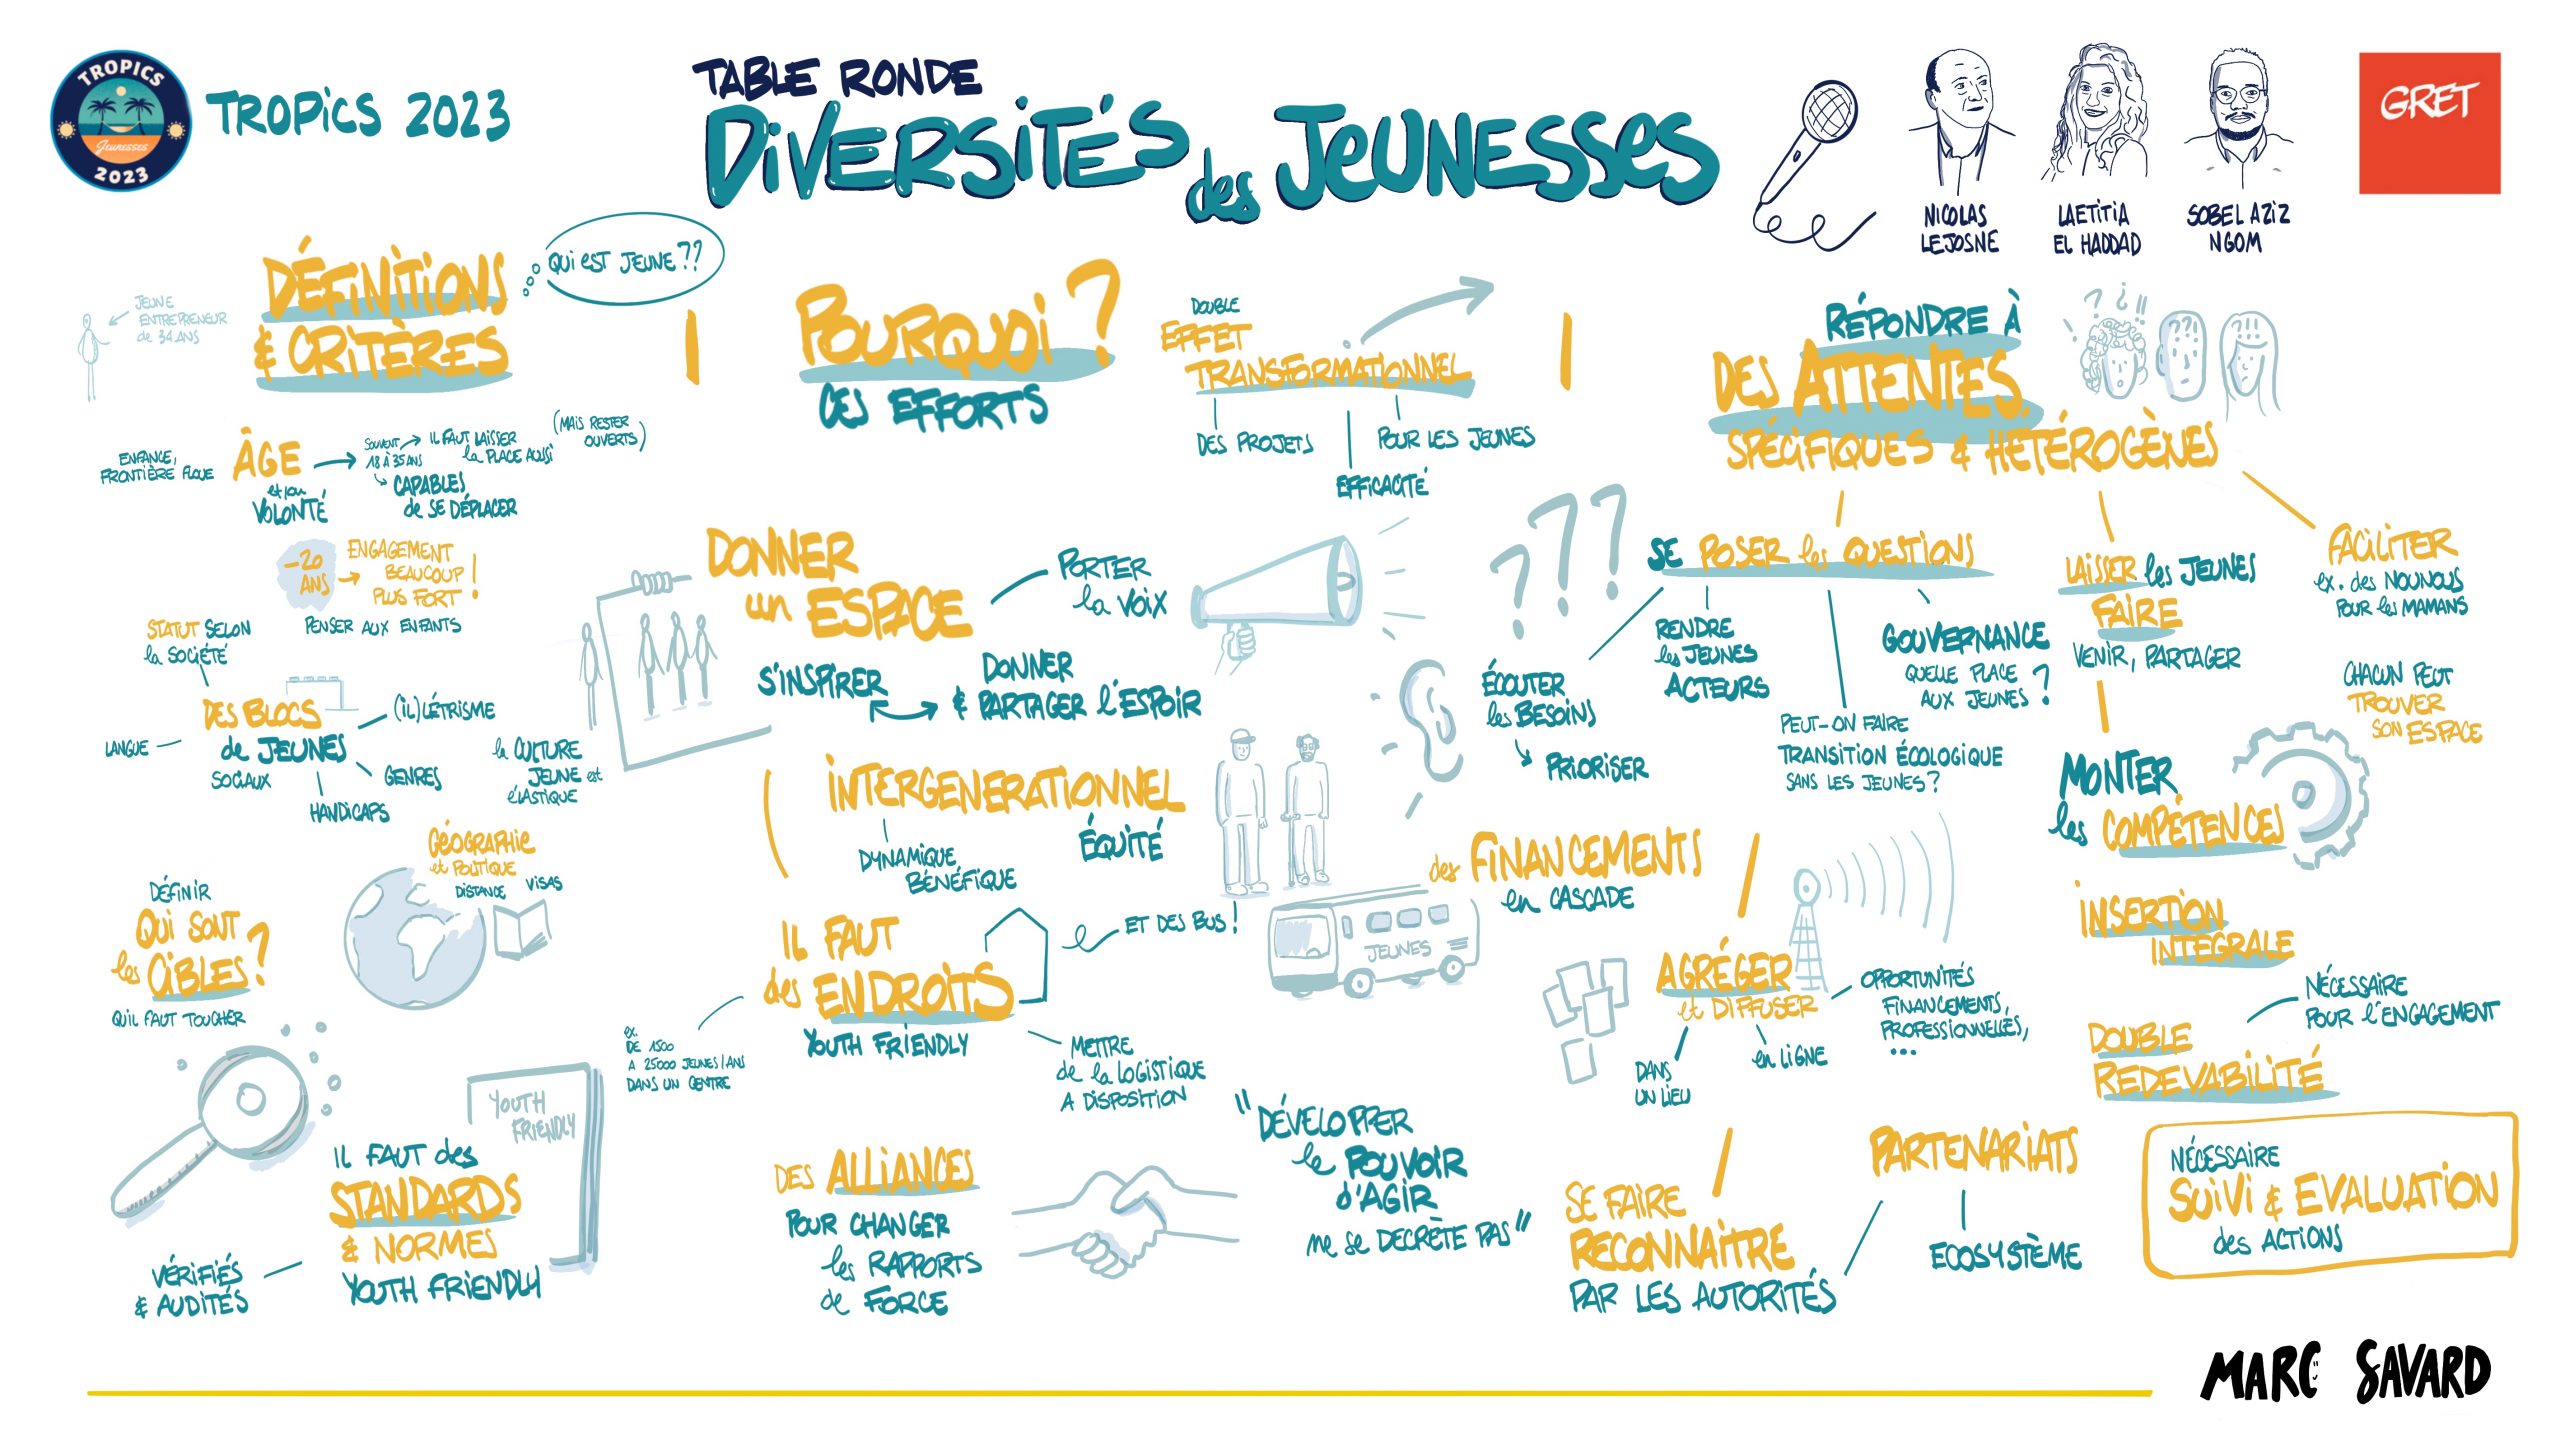 TROPICS
Jeunesses
2023
TROPICS 2023
TABLE RONDE
DIVERSITÉS des JEUNESSES
NICOLAS
LEJOSNE
LAETITIA
EL HADDAD
SOBEL AZIZ
NGOM
GRET
DÉFINITIONS
& CRITÈRES
QUI EST JEUNE ??
JEUNE
ENTREPRENEUR
de 34 ANS
ENFANCE,
FRONTIÈRE FLOUE
ÂGE
et/ou
VOLONTÉ
SOUVENT
18 À 35 ANS
IL FAUT LAISSER
la PLACE AUSSI
(MAIS RESTER
OUVERTS)
CAPABLES
de SE DÉPLACER
-20
ANS
ENGAGEMENT
BEAUCOUP
PLUS FORT !
PENSER AUX ENFANTS
STATUT SELON
la SOCIÉTÉ
DES BLOCS
de JEUNES
SOCIAUX
LANGUE
(IL)LÉTRISME
GENRES
HANDICAPS
la CULTURE
JEUNE est
ÉLASTIQUE
GÉOGRAPHIE
et POLITIQUE
DISTANCE
VISAS
DÉFINIR
QUI SONT
les CIBLES ?
QU'IL FAUT TOUCHER
YOUTH
FRIENDLY
IL FAUT des
STANDARDS
& NORMES
YOUTH FRIENDLY
VÉRIFIÉS
& AUDITÉS
POURQUOI ?
CES EFFORTS
DOUBLE
EFFET
TRANSFORMATIONNEL
DES PROJETS
EFFICACITÉ
POUR LES JEUNES
DONNER
un ESPACE
PORTER
la VOIX
S'INSPIRER
DONNER
& PARTAGER L'ESPOIR
INTERGENERATIONNEL
ÉQUITÉ
DYNAMIQUE
BÉNÉFIQUE
IL FAUT
des ENDROITS
YOUTH FRIENDLY
ET DES BUS !
JEUNES
ex.
DE 1500
A 25000 JEUNES/ANS
DANS UN CENTRE
METTRE
de la LOGISTIQUE
A DISPOSITION
DES ALLIANCES
POUR CHANGER
les RAPPORTS
de FORCE
"DÉVELOPPER
le POUVOIR
d'AGIR
ne se DECRÈTE PAS"
RÉPONDRE À
DES ATTENTES
SPÉCIFIQUES & HÉTÉROGÈNES
SE POSER les QUESTIONS
ÉCOUTER
les BESOINS
PRIORISER
RENDRE
les JEUNES
ACTEURS
PEUT-ON FAIRE
TRANSITION ÉCOLOGIQUE
SANS LES JEUNES ?
GOUVERNANCE
QUELLE PLACE
AUX JEUNES ?
LAISSER les JEUNES
FAIRE
VENIR, PARTAGER
FACILITER
ex. des NOUNOUS
POUR les MAMANS
CHACUN PEUT
TROUVER
SON ESPACE
MONTER
les COMPÉTENCES
des FINANCEMENTS
en CASCADE
AGRÉGER
et DIFFUSER
DANS
UN LIEU
en LIGNE
OPPORTUNITÉS
FINANCEMENTS,
PROFESSIONNELLES,
...
INSERTION
INTEGRALE
DOUBLE
REDEVABILITÉ
NÉCESSAIRE
POUR L'ENGAGEMENT
SE FAIRE
RECONNAITRE
PAR LES AUTORITÉS
PARTENARIATS
ECOSYSTÈME
NÉCESSAIRE
SUIVI & EVALUATION
des ACTIONS
MARC SAVARD